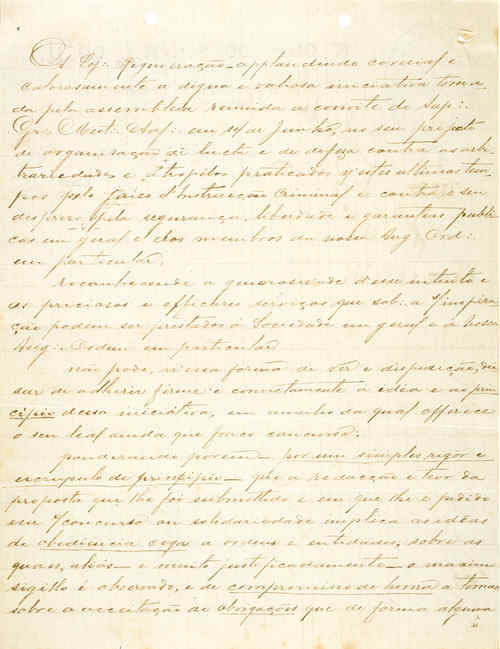 A Log∴ Regeneração applaudindo cordial e
calorosamente a digna e valiosa iniciativa toma-
da pela assemblea reunida a convite do Sap∴
Gr∴ Mest∴ em de Junho, no seu projecto
de organisação de lucta e de defeza contra as arbi-
trariedades e atropelos praticados n'estes ultimos tem-
pos pelo Juizo d'Instrucção Criminal e contra o seu
desprezo pela segurança, liberdade e garantias publi-
cas em geral e dos membros da nossa Aug∴ Ord∴
em particular;
reconhecendo a generosidade d'esse intuito e
os preciosos e efficazes serviços que sob a s/ inspira-
ção podem ser prestados á Sociedade em geral e á nossa
Aug∴ Ordem em particular
não pode, n'essa forma de ver e disposição, dei-
xar de adherir firme e convictamente á idea e ao prin-
cipio dessa iniciativa, em auxilio da qual offerece
o seu leal ainda que fraco concurso;
ponderando porem por um simples rigor e
escrupulo de principio que a redacção e teor da
proposta que lhe foi submettida e em que lhe é pedido
seu s/ concurso ou solidariedade implica as idéas
de obediencia cega a ordens e entidades, sobre as
quaes, aliás e muito justificadamente o maximo
sigillo é observado, e de compromisso de honra a tomar
sobre a acceitação de obrigações que de forma alguma